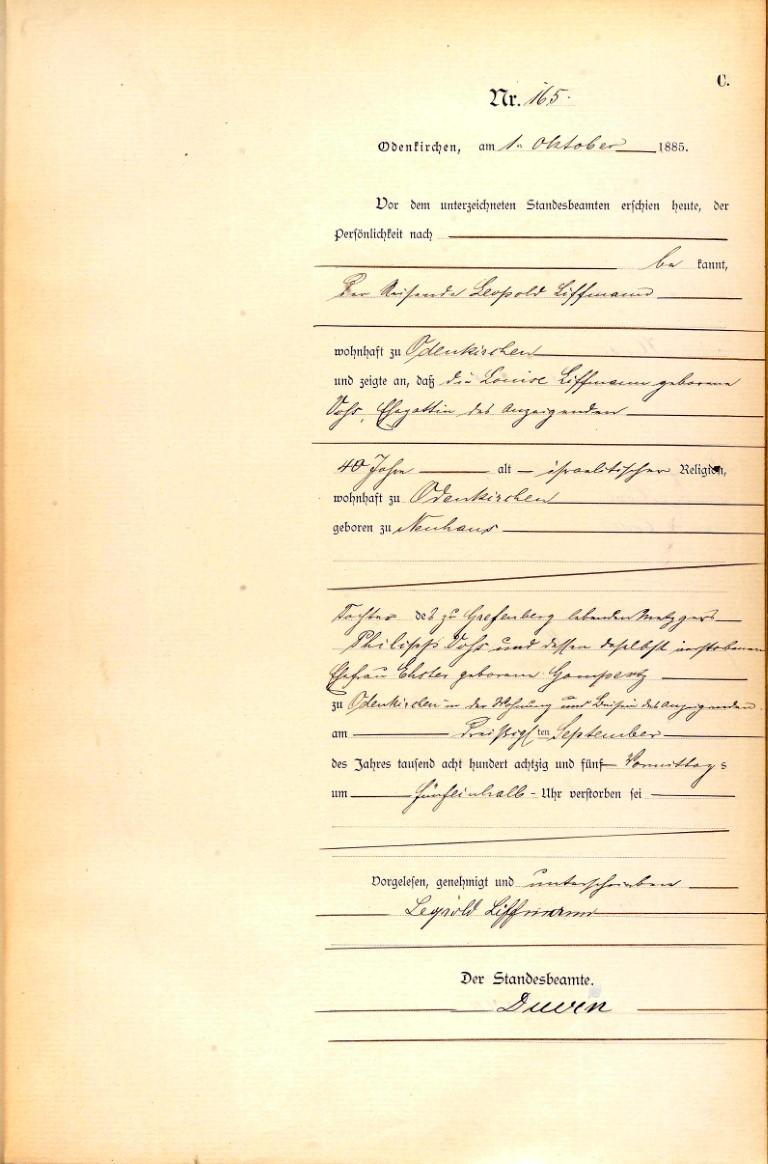 C.
Nr. 165.
Odenkirchen, am 1. Oktober 1885.
Vor dem unterzeichneten Standesbeamten erschien heute, der
Persönlichkeit nach
be kannt,
Der Reisende Leopold Liffmann
wohnhaft zu Odenkirchen
und zeigte an, daß die Louise Liffmann geborene
Vohs, Ehegattin des Anzeigenden
40 Jahre alt israelitischer Religion,
wohnhaft zu Odenkirchen
geboren zu Neuhaus
Tochter des zu Grefenberg lebenden Metzgers
Philipp Vohs und dessen daselbst verstorbenen
Ehefrau Ester geborene Gompertz
zu Odenkirchen in der Wohnung und Beisein des Anzeigenden
am Dreißigsten September
des Jahres tausend acht hundert achtzig und fünf Vormittags
um fünfeinhalb Uhr verstorben sei
Vorgelesen, genehmigt und unterschrieben
Leopold Liffmann
Der Standesbeamte.